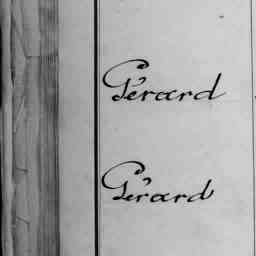 Gérard
Gérard